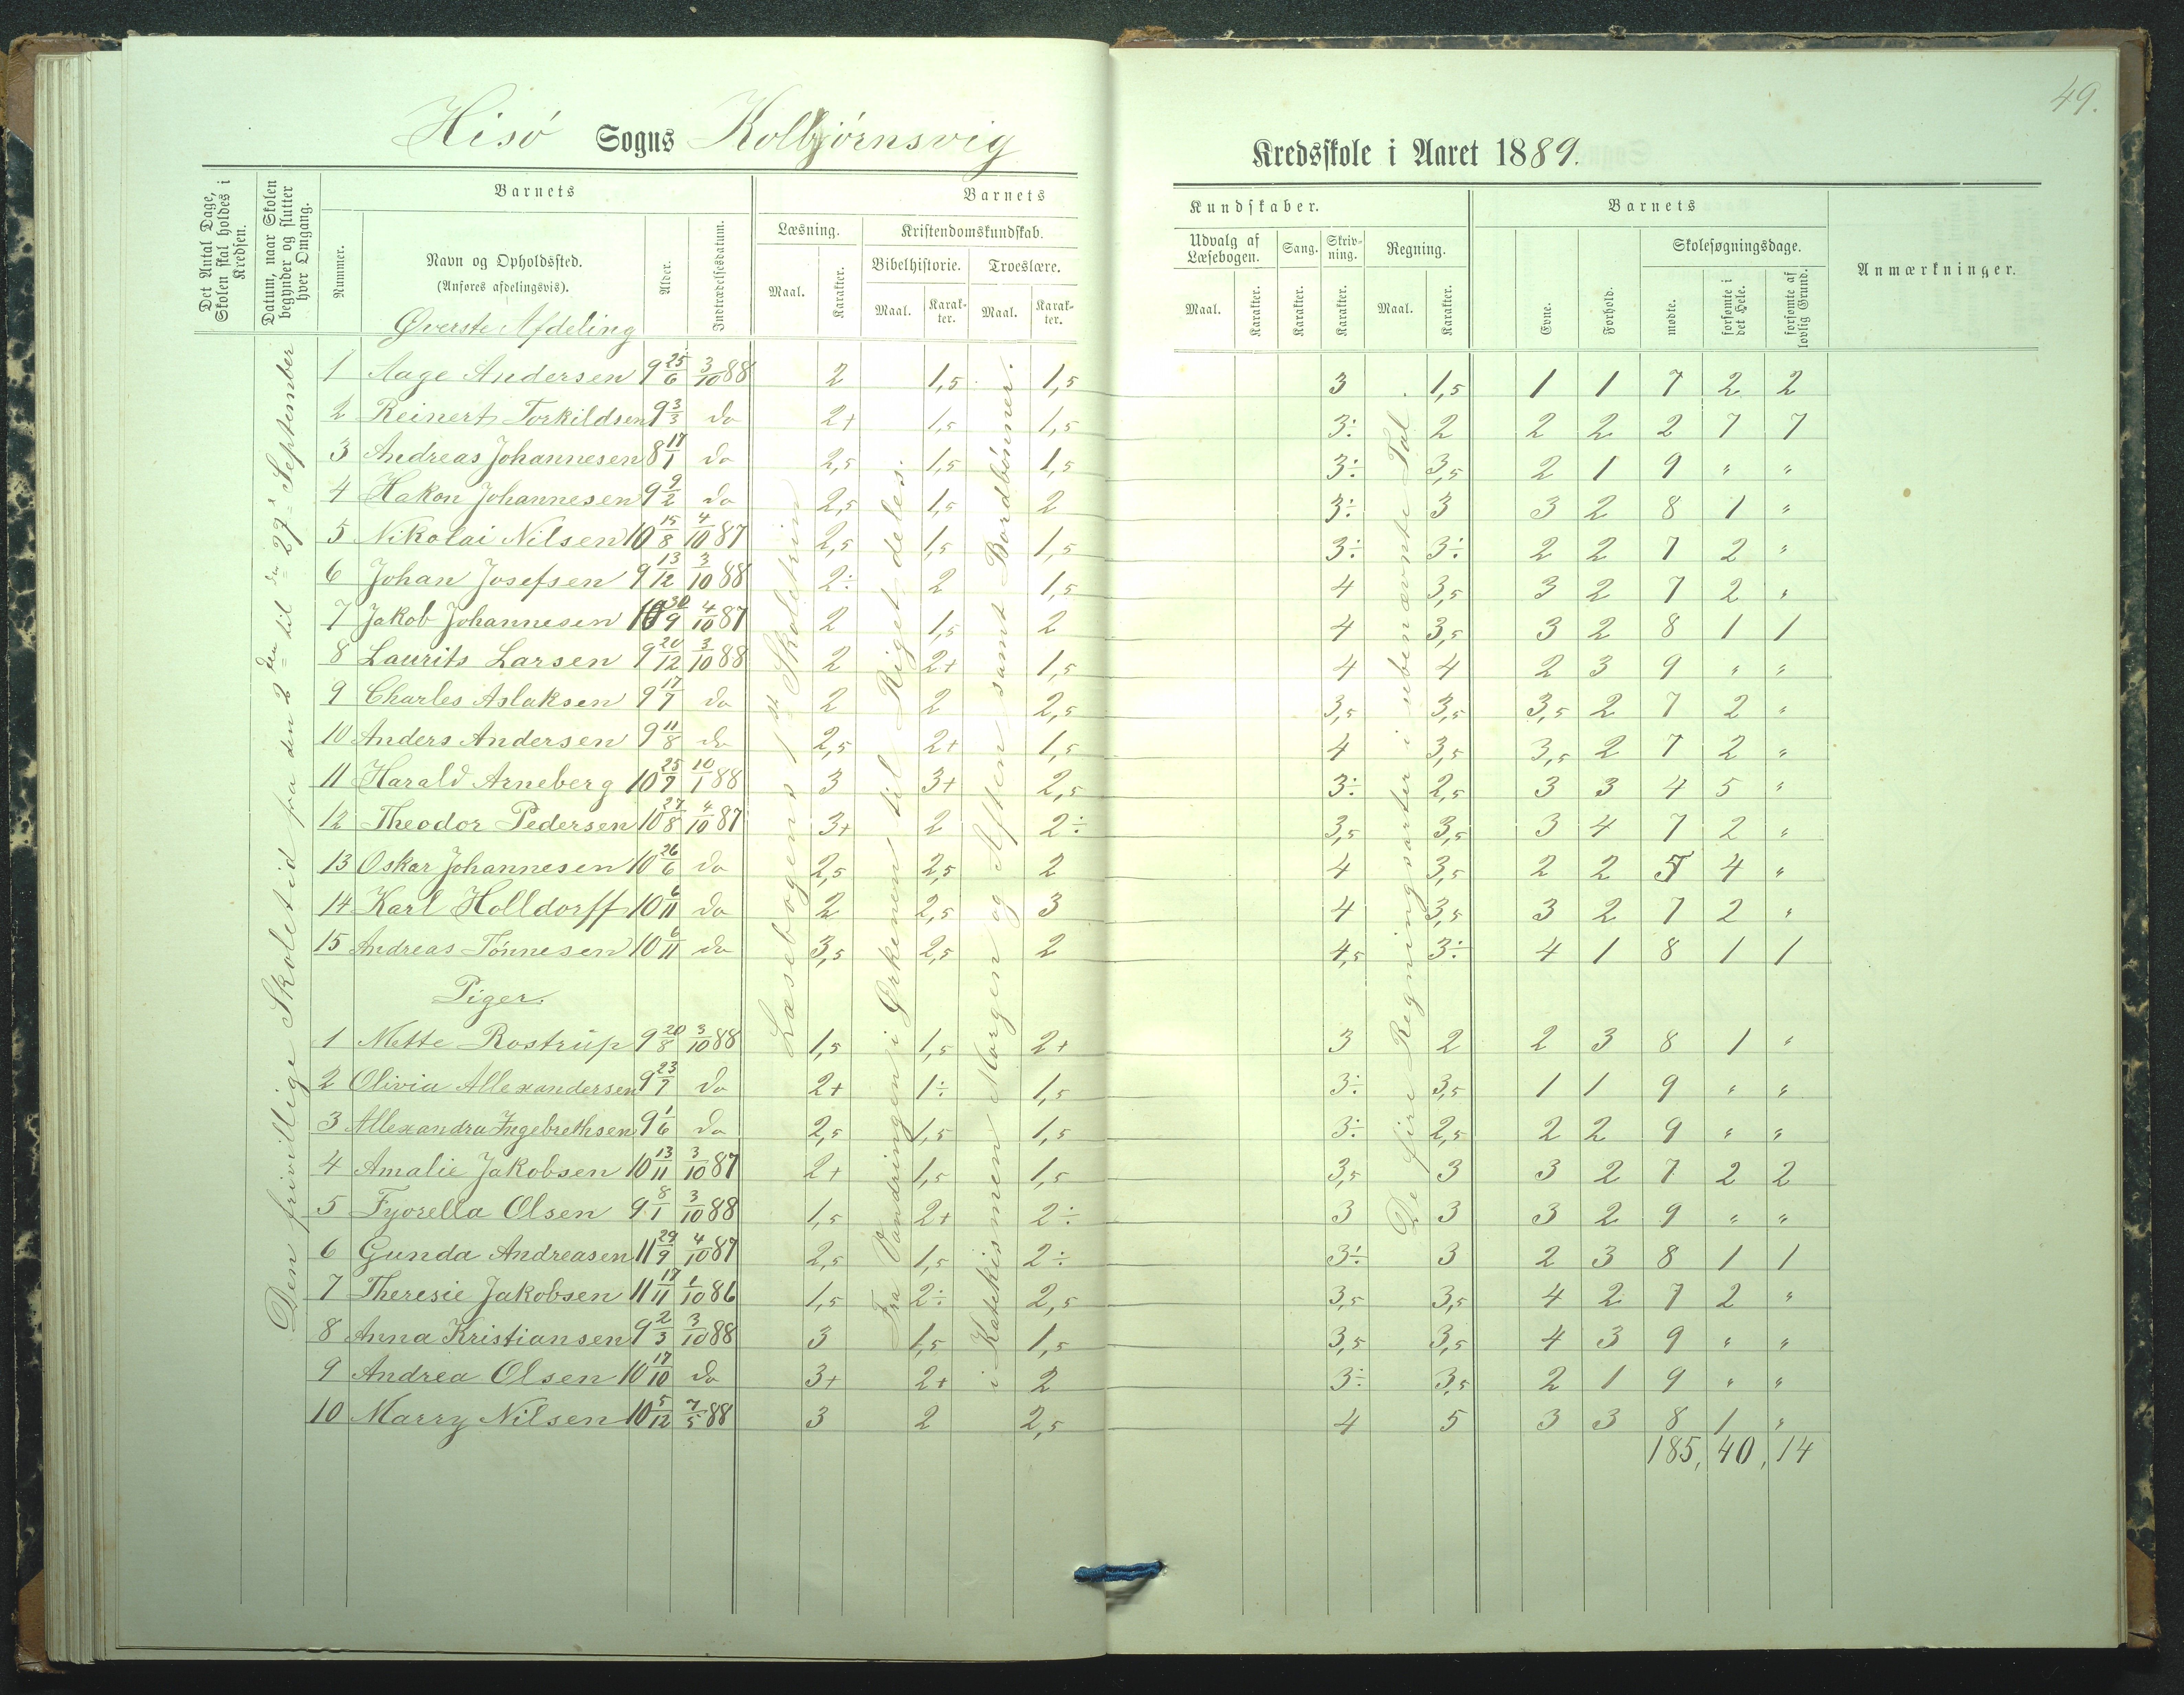 49.
Hisö Sogns Kolbjörnsvig Kredsskole i Aaret 1889.
Det Antal Dage, Skolen skal holdes i Kredsen.
Datum, naar Skolen begynder og slutter hver Omgang.
Barnets
Nummer.
Navn og Opholdssted.
(Anføres afdelingsvis).
Øverste Afdeling
Alder.
Indtrædelsesdatum.
Barnets Kundskaber.
Læsning.
Maal.
Karakter.
Kristendomskundskab.
Bibelhistorie.
Maal.
Karakter.
Troeslære.
Maal.
Karakter.
Udvalg af Læsebogen.
Maal.
Karakter.
Sang.
Karakter.
Skrivning.
Karakter.
Regning.
Maal.
Karakter.
Barnets
Evne.
Forhold.
Skolesøgningsdage.
mødte.
forsømte i det Hele.
forsømte af lovlig Grund.
Anmærkninger.
Den frivillige Skoletid fra den 2den til den 29de September
Læsebogens 1ste Skoletrin
Fra Vandringen i Ørkenen til Rigets deles.
i Katekismen Morgen og Aften samt Bordbønner.
De fire Regningsarter i ubenævnte Tal
1 Aage Andersen 9 25/6 3/10 88 2 1,5 1,5 3 1,5 1 1 7 2 2
2 Reinert Torkildsen 9 3/3 do 2+ 1,5 1,5 3÷ 2 2 2 2 7 7
3 Andreas Johannesen 8 17/1 do 2,5 1,5 1,5 3÷ 3,5 2 1 9 " "
4 Hakon Johannesen 9 9/2 do 2,5 1,5 2 3÷ 3 3 2 8 1 "
5 Nikolai Nilsen 10 15/8 4/10 87 2,5 1,5 1,5 3÷ 3÷ 2 2 7 2 "
6 Johan Josefsen 9 13/12 3/10 88 2÷ 2 1,5 4 3,5 3 2 7 2 "
7 Jakob Johannesen 10 30/9 4/10 87 2 1,5 2 4 3,5 3 2 8 1 1
8 Laurits Larsen 9 20/12 3/10 88 2 2+ 1,5 4 4 2 3 9 " "
9 Charles Aslaksen 9 17/7 do 2 2 2,5 3,5 3,5 3,5 2 7 2 "
10 Anders Andersen 9 11/8 do 2,5 2+ 1,5 4 3,5 3,5 2 7 2 "
11 Harald Arneberg 10 25/9 10/1 88 3 3+ 2,5 3÷ 2,5 3 3 4 5 "
12 Theodor Pedersen 10 27/8 4/10 87 3+ 2 2÷ 3,5 3,5 3 4 7 2 "
13 Oskar Johannesen 10 26/6 do 2,5 2,5 2 4 3,5 2 2 5 4 "
14 Karl Holldorff 10 6/11 do 2 2,5 3 4 3,5 3 2 7 2 "
15 Andreas Tönnesen 10 6/11 do 3,5 2,5 2 4,5 3÷ 4 1 8 1 1
Piger.
1 Mette Rostrup 9 20/8 3/10 88 1,5 1,5 2+ 3 2 2 3 8 1 "
2 Olivia Allexandersen 9 23/7 do 2+ 1÷ 1,5 3÷ 3,5 1 1 9 " "
3 Allexandra Ingebrethsen 9 1/6 do 2,5 1,5 1,5 3÷ 2,5 2 2 9 " "
4 Amalie Jakobsen 10 13/11 3/10 87 2+ 1,5 1,5 3,5 3 3 2 7 2 2
5 Fyorella Olsen 9 8/1 3/10 88 1,5 2+ 2÷ 3 3 3 2 9 " "
6 Gunda Andreasen 11 29/9 4/10 87 2,5 1,5 2÷ 3÷ 3 2 3 8 1 1
7 Theresie Jakobsen 11 17/11 1/10 86 1,5 2÷ 2,5 3,5 3,5 4 2 7 2 "
8 Anna Kristiansen 9 2/3 3/10 88 3 1,5 1,5 3,5 3,5 4 3 9 " "
9 Andrea Olsen 10 17/10 do 3+ 2+ 2 3÷ 3,5 2 1 9 " "
10 Marry Nilsen 10 5/12 7/5 88 3 2 2,5 4 5 3 3 8 1 "
185, 40, 14